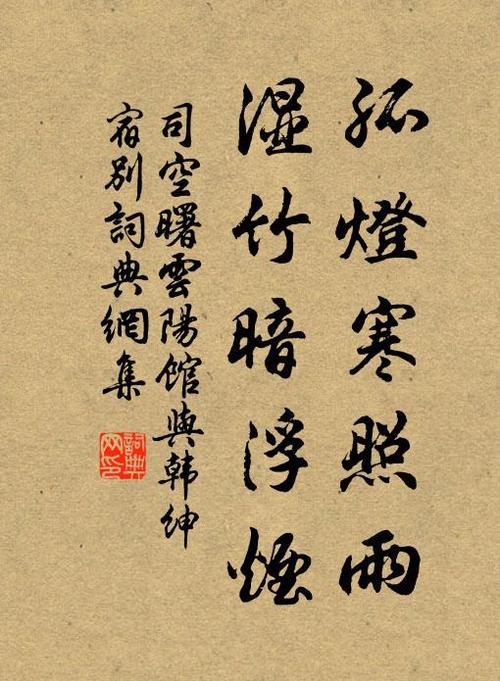 孤燈寒照雨
湿竹暗浮煙
司空曙雲陽館與韓紳
宿別詞典網集
詞典网印